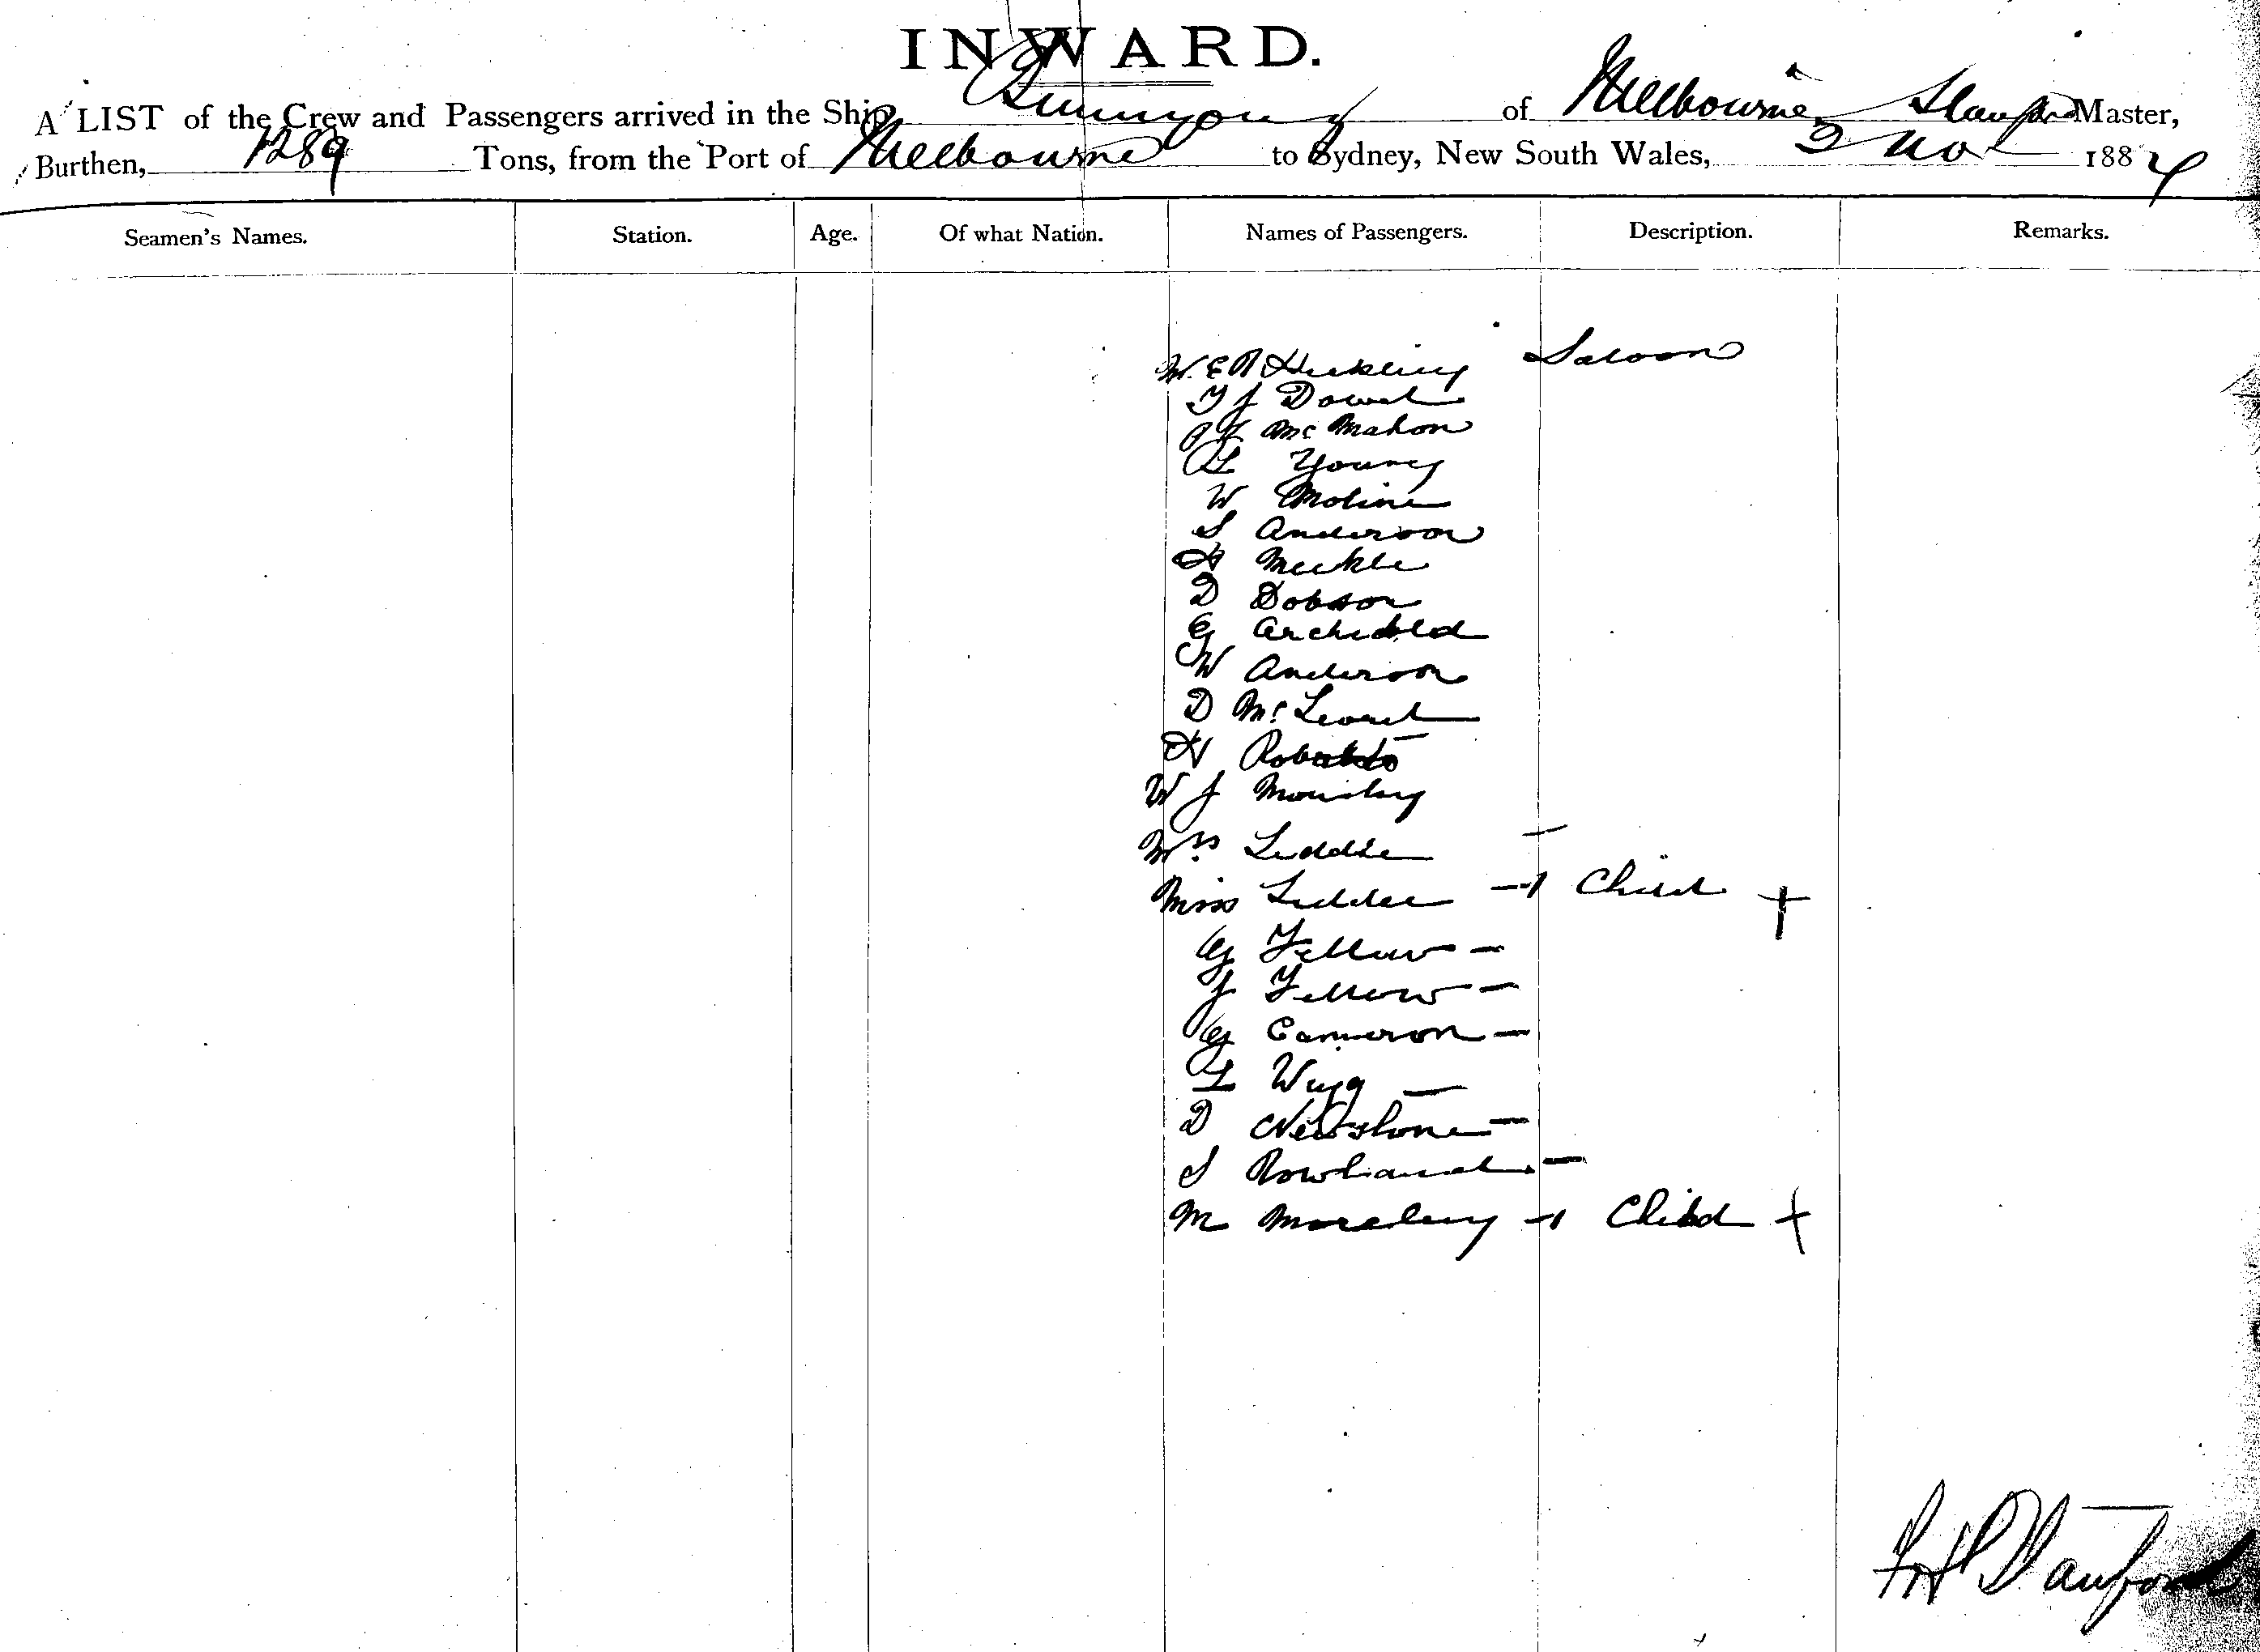 INWARD.
A LIST of the Crew and Passengers arrived in the Ship Buninyong of Melbourne, Stanford Master,
Burthen, 1289 Tons, from the Port of Melbourne to Sydney, New South Wales, 2 Nov 1884
Seamen's Names. Station. Age. Of what Nation. Names of Passengers. Description. Remarks.
W. E. A Saloon
J Dowd
Mc Mahon
L Young
W Moline
S Anderson
A Meikle
D Dobson
G Archibold
W Anderson
D McLeod
H Roberts
W J
Mrs Liddle —
Miss Liddle — 1 Child +
G Fellow —
J Fellow —
G Cameron —
L Wigg —
D Newstone —
S Rowland —
M — 1 Child +
F H Stanford